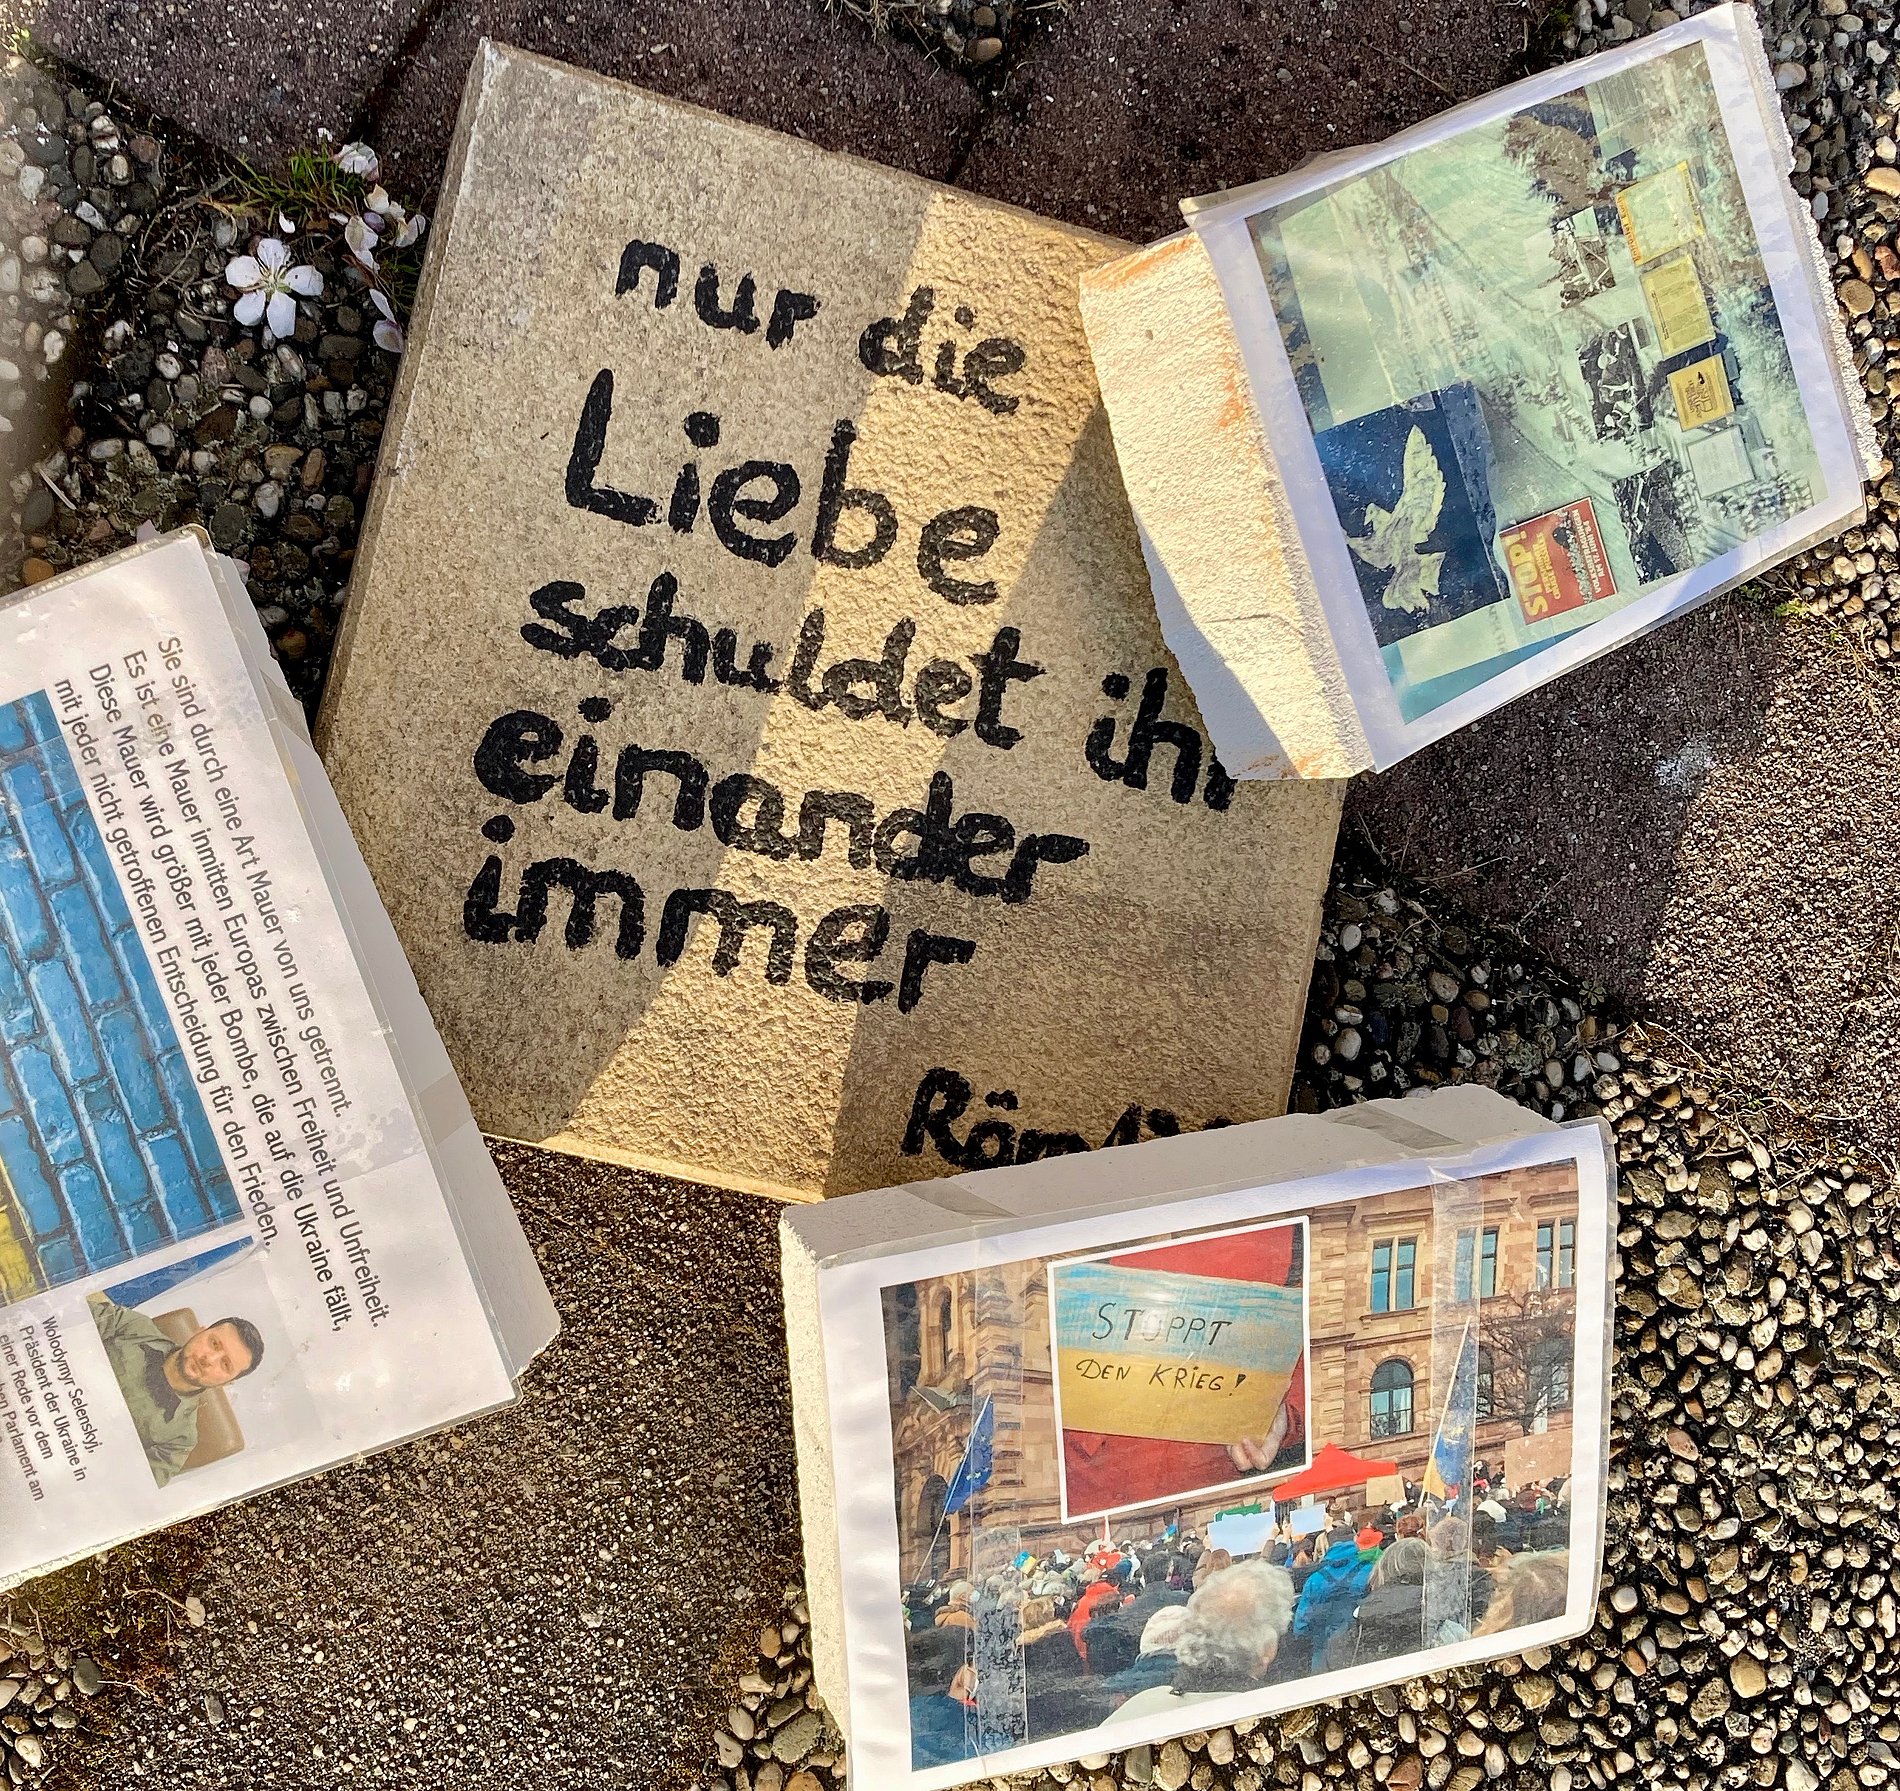 nur die
Liebe
schuldet ihr
einander
immer
Sie sind durch eine Art Mauer von uns getrennt.
Es ist eine Mauer inmitten Europas zwischen Freiheit und Unfreiheit.
Diese Mauer wird größer mit jeder Bombe, die auf die Ukraine fällt,
mit jeder nicht getroffenen Entscheidung für den Frieden.
Wolodymyr Selenskyj,
Präsident der Ukraine in
einer Rede vor dem
Parlament am
STOP!
STOPPT
DEN KRIEG!